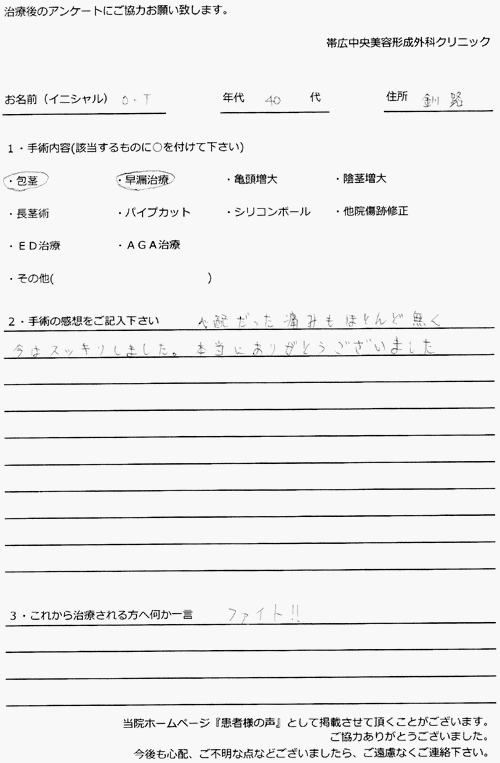 治療後のアンケートにご協力お願い致します。
帯広中央美容形成外科クリニック
お名前（イニシャル） O・T 年代 40 代 住所 釧路
１・手術内容(該当するものに○を付けて下さい)
・包茎 ・早漏治療 ・亀頭増大 ・陰茎増大
・長茎術 ・パイプカット ・シリコンボール ・他院傷跡修正
・ＥＤ治療 ・ＡＧＡ治療
・その他( )
２・手術の感想をご記入下さい 心配だった痛みもほとんど無く
今はスッキリしました。本当にありがとうございました
３・これから治療される方へ何か一言 ファイト!!
当院ホームページ『患者様の声』として掲載させて頂くことがございます。
ご協力ありがとうございました。
今後も心配、ご不明な点などございましたら、ご遠慮なくご連絡下さい。